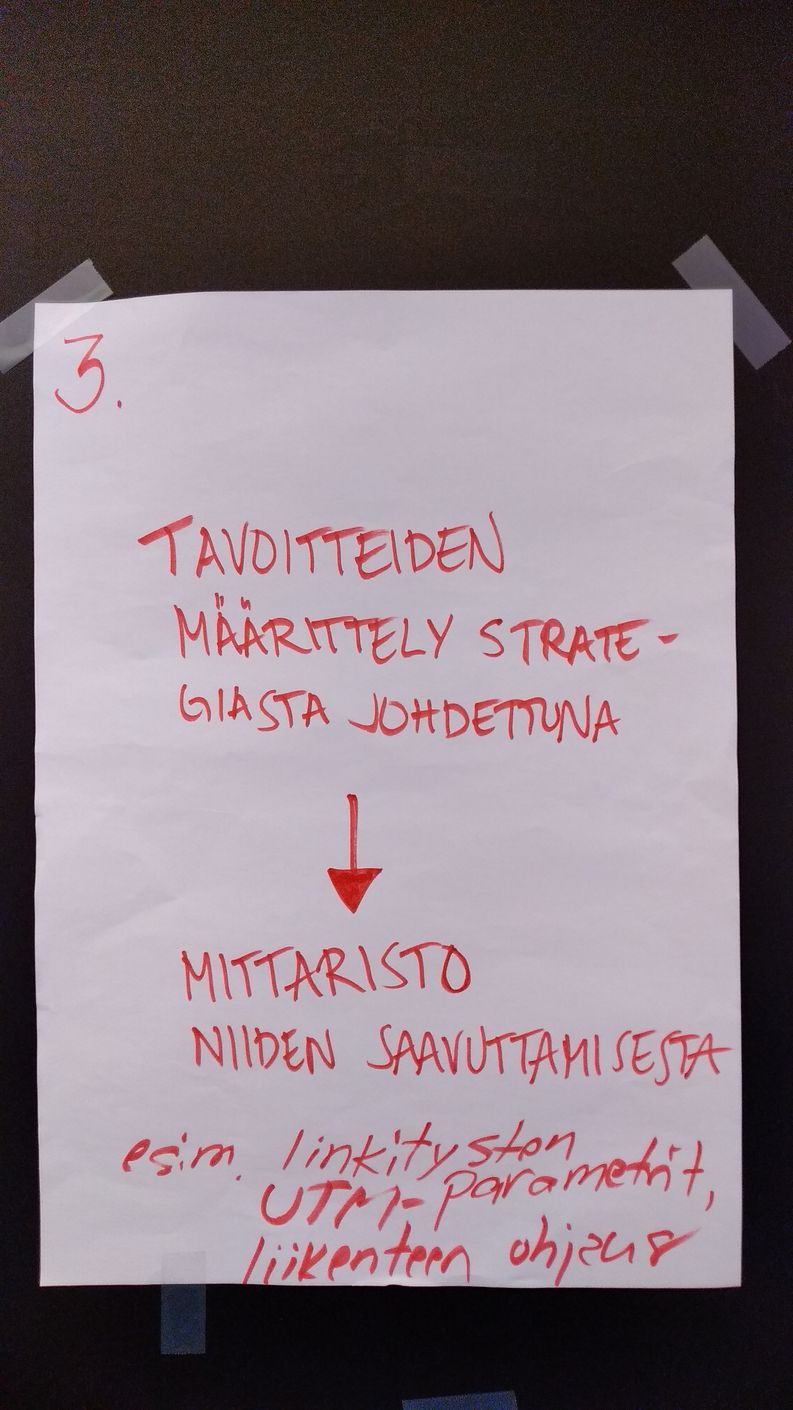 3.
TAVOITTEIDEN
MÄÄRITTELY STRATE-
GIASTA JOHDETTUNA
MITTARISTO
NIIDEN SAAVUTTAMISESTA
esim. linkitysten
UTM-parametrit,
liikenteen ohjaus